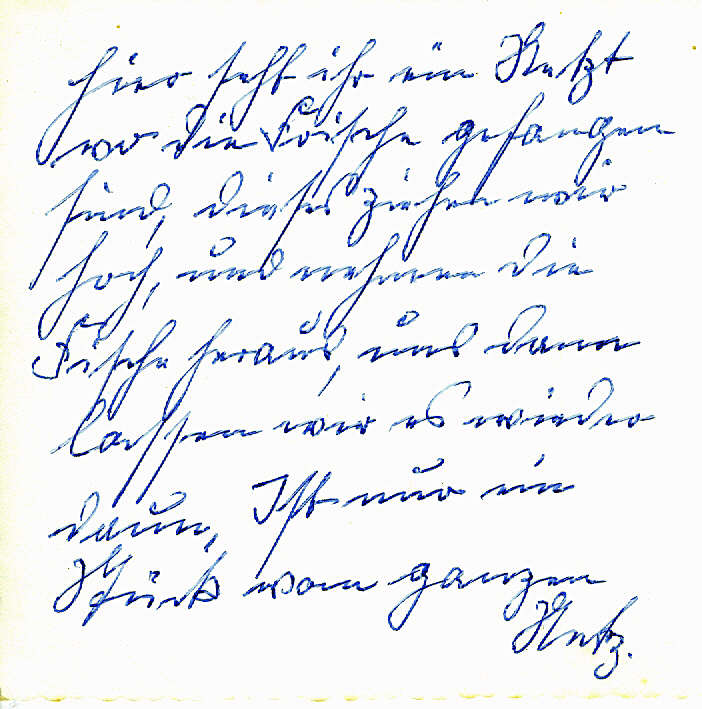 hier seht ihr ein Netzt
wo die Fische gefangen
sind, dieses ziehen wir
hoch, und nehmen die
Fische heraus, und dann
lassen wir es wieder
daun, Ist nur ein
Stück vom ganzen
Netz.